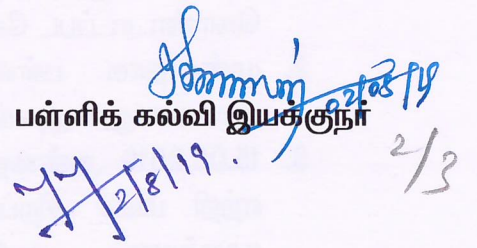 02/08/19
பள்ளிக் கல்வி இயக்குநர்
2/8/19.
2/3